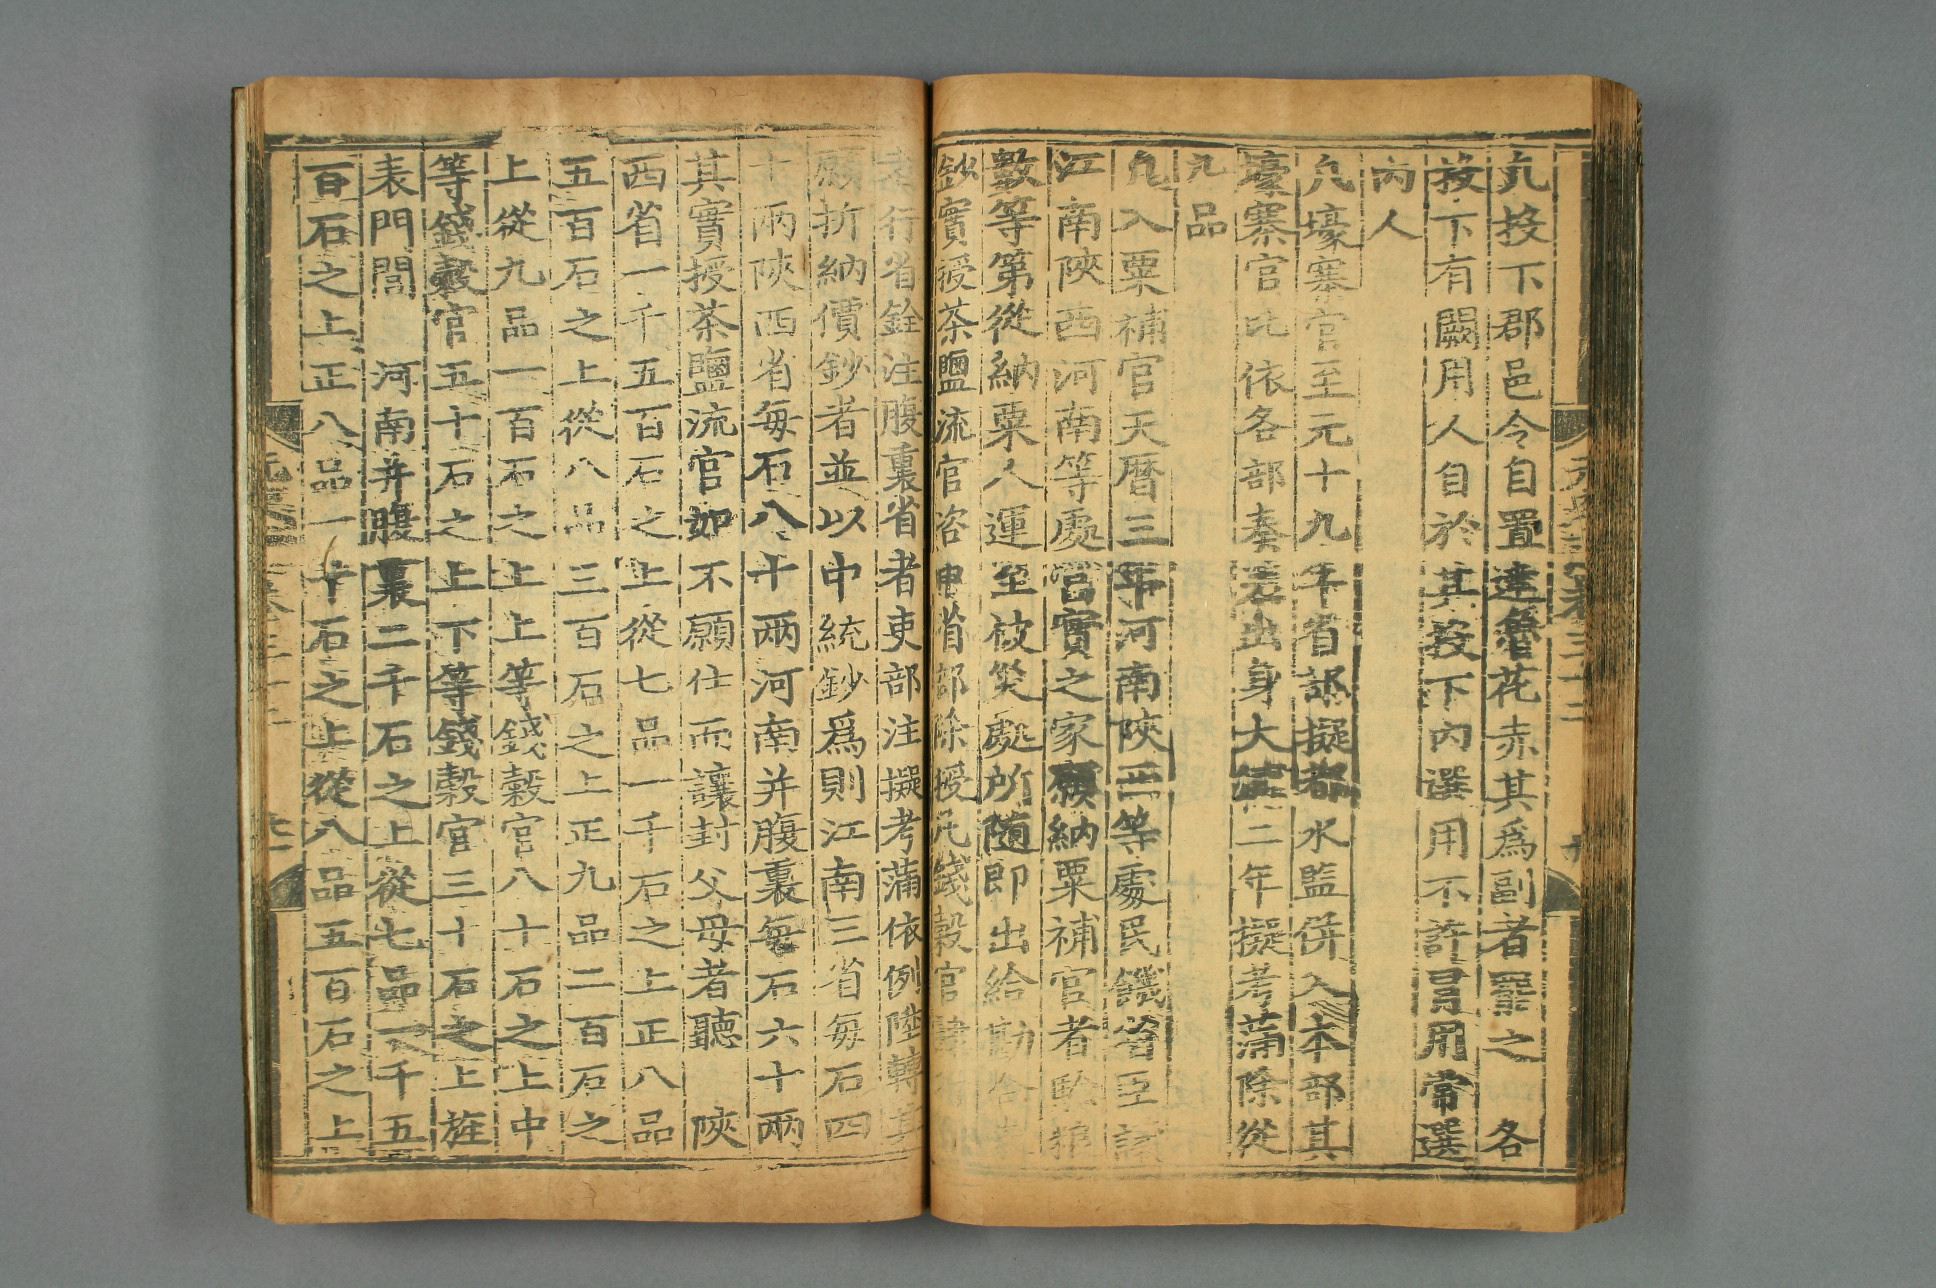 凡投下郡邑令自置達魯花赤其爲副者罷之　各
投下有闕用人自於其投下內選用不許冒用常選
內人
凡壕寨官至元十九年省部擬都水監併入本部其
壕寨官比依各部奏差出身大德二年擬考滿除從
九品
凡入粟補官天曆三年河南陝西等處民饑省臣議
江南陝西河南等處富實之家願納粟補官者驗粮
數等第從納粟人運至被災處所隨即出給勘合
鈔實授茶鹽流官咨申省部除授凡錢穀官
行省銓注腹裏省者吏部注擬考滿依例陞轉其
願折納價鈔者並以中統鈔爲則江南三省每石四
十兩陝西省每石八十兩河南并腹裏每石六十兩
其實授茶鹽流官如不願仕而讓封父母者聽　陝
西省一千五百石之上從七品一千石之上正八品
五百石之上從八品三百石之上正九品二百石之
上從九品一百石之上上等錢穀官八十石之上中
等錢穀官五十石之上下等錢穀官三十石之上旌
表門閭　河南并腹裏二千石之上從七品一千五
百石之上正八品一千石之上從八品五百石之上